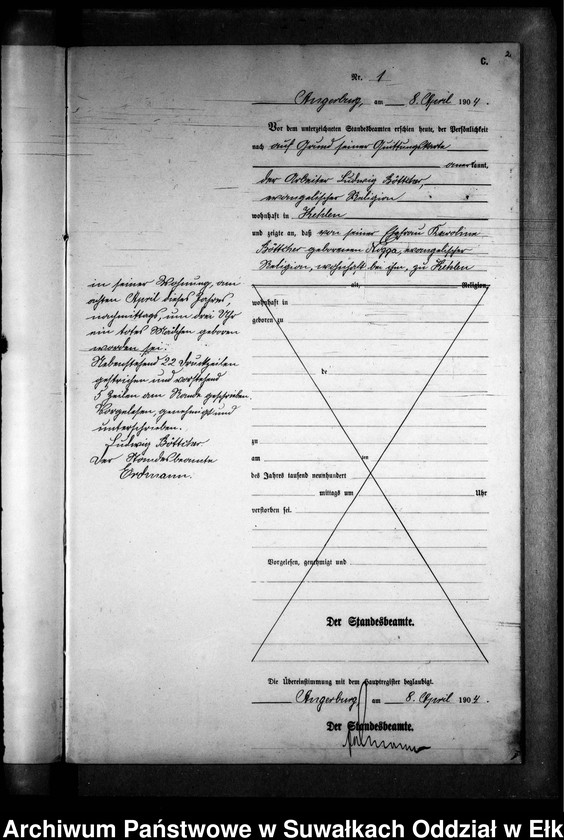 C.
2
Nr. 1
Angerburg, am 8. April 1904.
Vor dem unterzeichneten Standesbeamten erschien heute, der Persönlichkeit
nach auf Grund seiner Quittungskarte
anerkannt,
der Arbeiter Ludwig Böttcher,
evangelischer Religion
wohnhaft in Kehlen
und zeigte an, daß von seiner Ehefrau Karoline
Böttcher geborenen Rogga, evangelischer
Religion, wohnhaft bei ihm, zu Kehlen
alt, Religion,
wohnhaft in
geboren zu
de
zu
am ten
des Jahres tausend neunhundert
mittags um Uhr
verstorben sei.
Vorgelesen, genehmigt und
Der Standesbeamte.
in seiner Wohnung, am
achten April dieses Jahres,
nachmittags, um drei Uhr
ein totes Mädchen geboren
worden sei.
Nebenstehend 22 Druckzeilen
gestrichen und vorstehend
5 Zeilen am Rande geschrieben.
Vorgelesen, genehmigt und
unterschrieben.
Ludwig Böttcher
Der Standesbeamte
Erdmann.
Die Übereinstimmung mit dem Hauptregister beglaubigt.
Angerburg, am 8. April 1904.
Der Standesbeamte.
Erdmann
Archiwum Państwowe w Suwałkach Oddział w Ełk